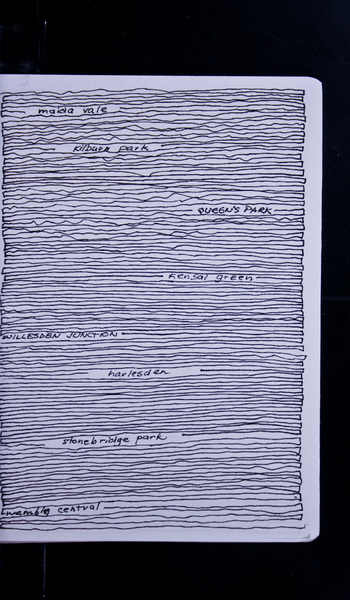 maida vale
kilburn park
QUEEN'S PARK
kensal green
WILLESDEN JUNCTION
harlesden
stonebridge park
wembley central